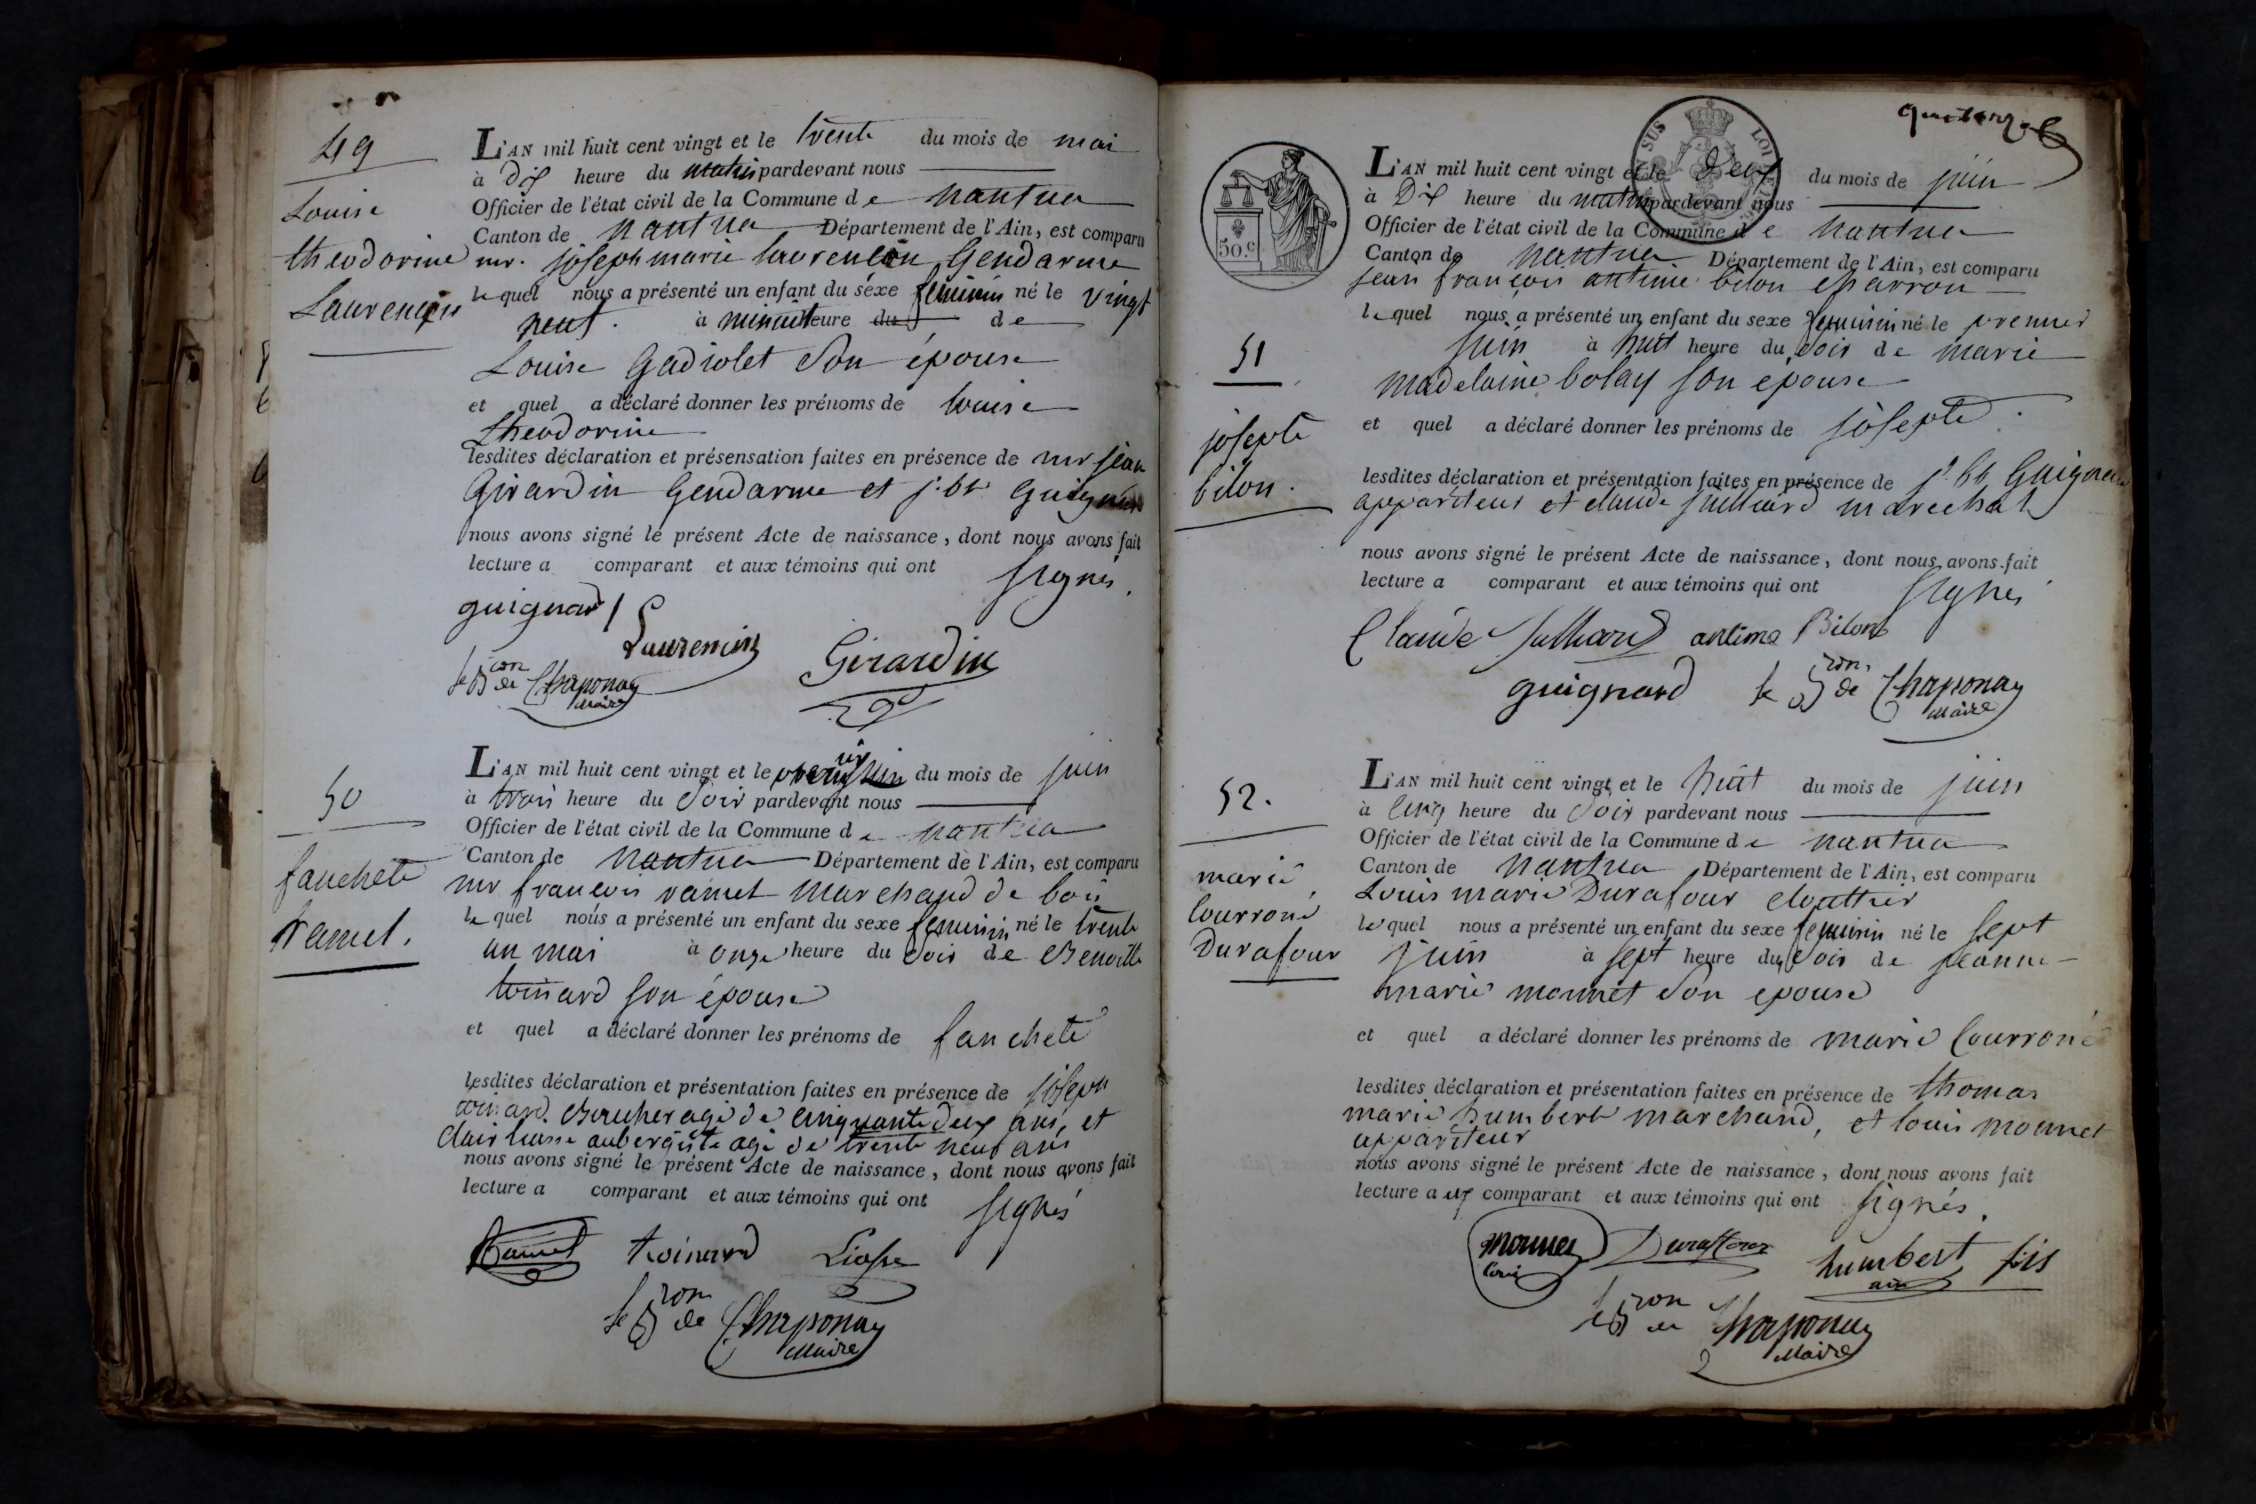 49
Louise
theodorine
Laurencin
L'AN mil huit cent vingt et le trente du mois de mai
à Dix heure du matin pardevant nous
Officier de l'état civil de la Commune de nantua
Canton de nantua Département de l'Ain, est comparu
mr. joseph marie laurencin Gendarme
lequel nous a présenté un enfant du sexe feminin né le vingt
neuf. à minuit heure du de
Louise Gadiolet son épouse
et quel a déclaré donner les prénoms de louise
theodorine
lesdites déclaration et présensation faites en présence de mr jean
Girardin Gendarme et j. bte Guignard
nous avons signé le présent Acte de naissance, dont nous avons fait
lecture a comparant et aux témoins qui ont signés.
guignard Laurencin Girardin
le Bon de Chaponay
Maire
50
fanchete
ramel.
L'AN mil huit cent vingt et le premier juin du mois de juin
à trois heure du soir pardevant nous
Officier de l'état civil de la Commune de nantua
Canton de nantua Département de l'Ain, est comparu
mr françois ramet marchand de bois
lequel nous a présenté un enfant du sexe feminin né le trente
un mai à onze heure du soir de Benoitte
toinard son épouse
et quel a déclaré donner les prénoms de fanchete
lesdites déclaration et présentation faites en présence de joseph
toinard. Boucher agé de cinquante deux ans, et
Clair liasse aubergiste agé de trente neuf ans
nous avons signé le présent Acte de naissance, dont nous avons fait
lecture a comparant et aux témoins qui ont signés
Ramet toinard Liasse
le Bon de Chaponay
Maire
50 c.
51
josepte
bilon.
L'AN mil huit cent vingt et le Deux du mois de juin
à Dix heure du matin pardevant nous
Officier de l'état civil de la Commune de nantua
Canton de nantua Département de l'Ain, est comparu
jean françois antime bilon charron
lequel nous a présenté un enfant du sexe feminin né le premier
juin à huit heure du soir de marie
madelaine bolay son épouse
et quel a déclaré donner les prénoms de josepte.
lesdites déclaration et présentation faites en présence de j. bt Guignard
appariteur et claude julliard marechal
nous avons signé le présent Acte de naissance, dont nous avons fait
lecture a comparant et aux témoins qui ont signés
Claude Julliard antime Bilon
guignard le Bon de Chaponay
Maire
52.
marie
Courroné
Durafour
L'AN mil huit cent vingt et le huit du mois de juin
à cinq heure du soir pardevant nous
Officier de l'état civil de la Commune de nantua
Canton de nantua Département de l'Ain, est comparu
Louis marie Durafour clouttier
lequel nous a présenté un enfant du sexe feminin né le sept
juin à sept heure du soir de jeanne
marie monnet son epouse
et quel a déclaré donner les prénoms de marie Courroné
lesdites déclaration et présentation faites en présence de thomas
marie humbert marchand, et louis monnet
appariteur
nous avons signé le présent Acte de naissance, dont nous avons fait
lecture aux comparant et aux témoins qui ont signés.
monnet Louis Duraffour humbert fils
le Bon de Chaponay
Maire